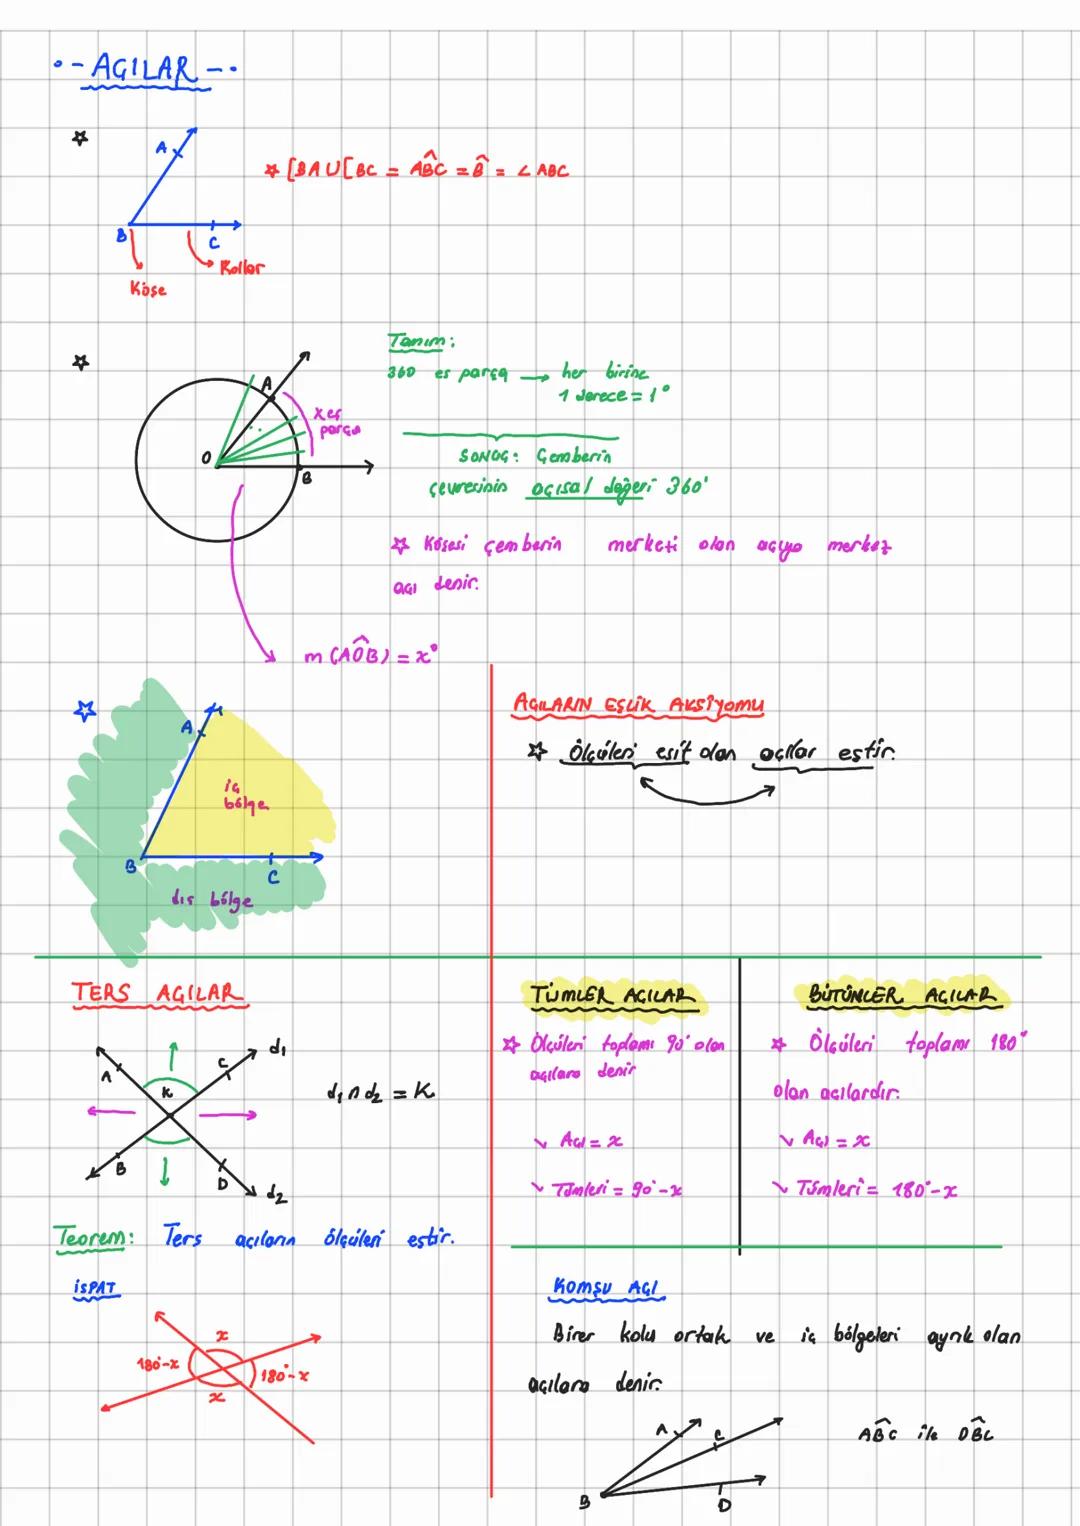 AÇILAR
A
[BA U [BC = ABC = B = ∠ ABC
B
C
Kollar
Köşe
Tanım:
360 eş parça → her birine
1 derece = 1°
A
x eş
parça
O
B
SONUÇ: Çemberin
çevresinin açısal değeri 360°
☆ Köşesi çemberin merkezi olan açıya merkez
açı denir.
m(AOB) = x°
A
iç
bölge
B
C
dış bölge
AÇILARIN EŞLİK AKSİYOMU
☆ Ölçüleri eşit olan açılar eştir.
TERS AÇILAR
A
K
C
d1
d1 ∩ d2 = K
B
D
d2
Teorem: Ters açıların ölçüleri eştir.
İSPAT
x
180°-x
180°-x
x
TÜMLER AÇILAR
☆ Ölçüleri toplamı 90° olan
açılara denir
Açı = x
Tümleri = 90°-x
BÜTÜNLER AÇILAR
☆ Ölçüleri toplamı 180°
olan açılardır.
Açı = x
Tümleri = 180°-x
KOMŞU AÇI
Birer kolu ortak ve iç bölgeleri ayrık olan
açılara denir.
A
C
B
D
ABC ile DBC